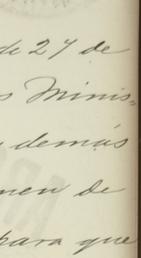 de 27 de
s Minis-
demás
men de
para que